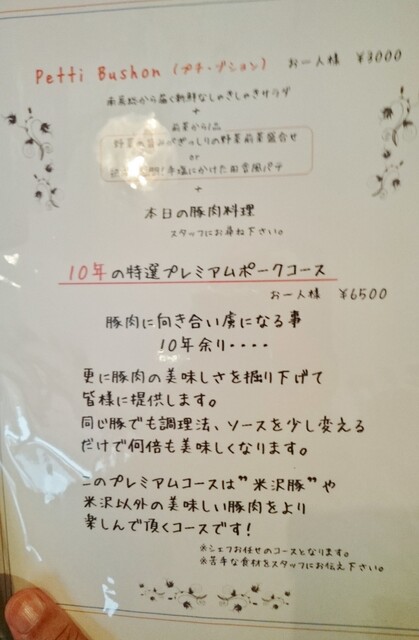 Petti Bushon (プチ・ブション) お一人様 ¥3000
産地から届く新鮮なしのきしのきサラダ
+
前菜から1品
野菜の旨みぎっしりの野菜前菜盛合せ
or
手塩にかけた田舎風パテ
+
本日の豚肉料理
スタッフにお尋ね下さい。
10年の特選プレミアムポークコース
お一人様 ¥6500
豚肉に向き合い虜になる事
10年余り・・・・
更に豚肉の美味しさを掘り下げて
皆様に提供します。
同じ豚でも調理法、ソースを少し変える
だけで何倍も美味しくなります。
このプレミアムコースは"米沢豚"や
米沢以外の美味しい豚肉をより
楽しんで頂くコースです!
※シェフお任せのコースとなります。
※苦手な食材をスタッフにお伝え下さい。